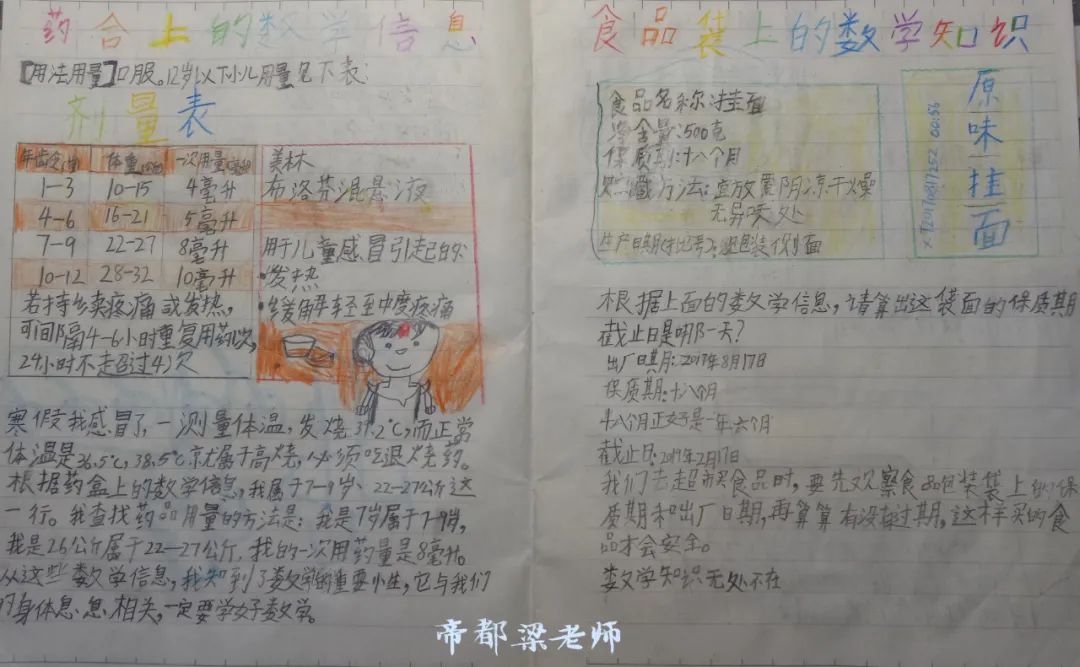 药合上的数学信息
【用法用量】口服。12岁以下小儿用量见下表:
剂量表
年龄(岁) 体重(公斤) 一次用量(毫升)
1-3 10-15 4毫升
4-6 16-21 5毫升
7-9 22-27 8毫升
10-12 28-32 10毫升
若持续疼痛或发热,
可间隔4-6小时重复用药1次,
24小时不走超过4次
美林
布洛芬混悬液
用于儿童感冒引起的
·发热
·缓解轻至中度疼痛
寒假我感冒了,一测量体温,发烧37.2℃,而正常
体温是36.5℃,38.5℃就属于高烧,必须吃退烧药。
根据药盒上的数学信息,我属于7-9岁、22-27公斤这
一行。我查找药品用量的方法是:我是7岁属于7-9岁,
我是26公斤属于22-27公斤,我的一次用药量是8毫升。
从这些数学信息,我知到了数学的重要小性,它与我们
的身体息息相关,一定要学好数学。
食品装上的数学知识
食品名称:挂面
净含量:500克
保质期:十八个月
贮藏方法:宜放置阴凉干燥
无异味处
生产日期(批号):见包装侧面
原味挂面
20170817252 00:56
根据上面的数学信息,请算出这袋面的保质期
截止日是哪一天?
出厂日期:2017年8月17日
保质期:十八个月
十八个月正好是一年六个月
截止日:2019年2月17日
我们去超市买食品时,要先观察食品包装袋上的保
质期和出厂日期,再算算有没有过期,这样买的食
品才会安全。
数学知识无处不在
帝都梁老师